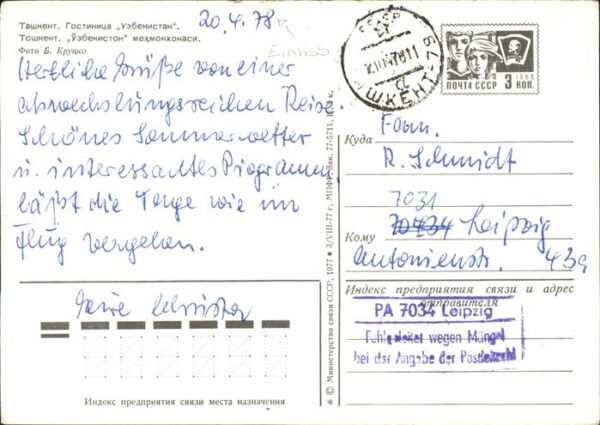 Ташкент. Гостиница „Узбекистан“.
Тошкент. „Ўзбекистон“ меҳмонхонаси.
Фото Б. Круцко
20.4.78
Einlass
Herzliche Grüße von einer
abwechslungsreichen Reise.
Schönes Sommerwetter
u. interessantes Programm
läßt die Tage wie im
Flug vergehen.
СССР
ТАШКЕНТ-76
ПОЧТА СССР 3 КОП.
1966
Куда
Fam.
R. Schmidt
7031
70434 Leipzig
Кому
Antonienstr. 43a
Индекс предприятия связи и адрес
отправителя
PA 7034 Leipzig
Fehlgeleitet wegen Mängel
bei der Angabe der Postleitzahl
Индекс предприятия связи места назначения
* © Министерство связи СССР. 1977 * 3/VIII-77 г. МПФГ. Зак. 77-5711. к.